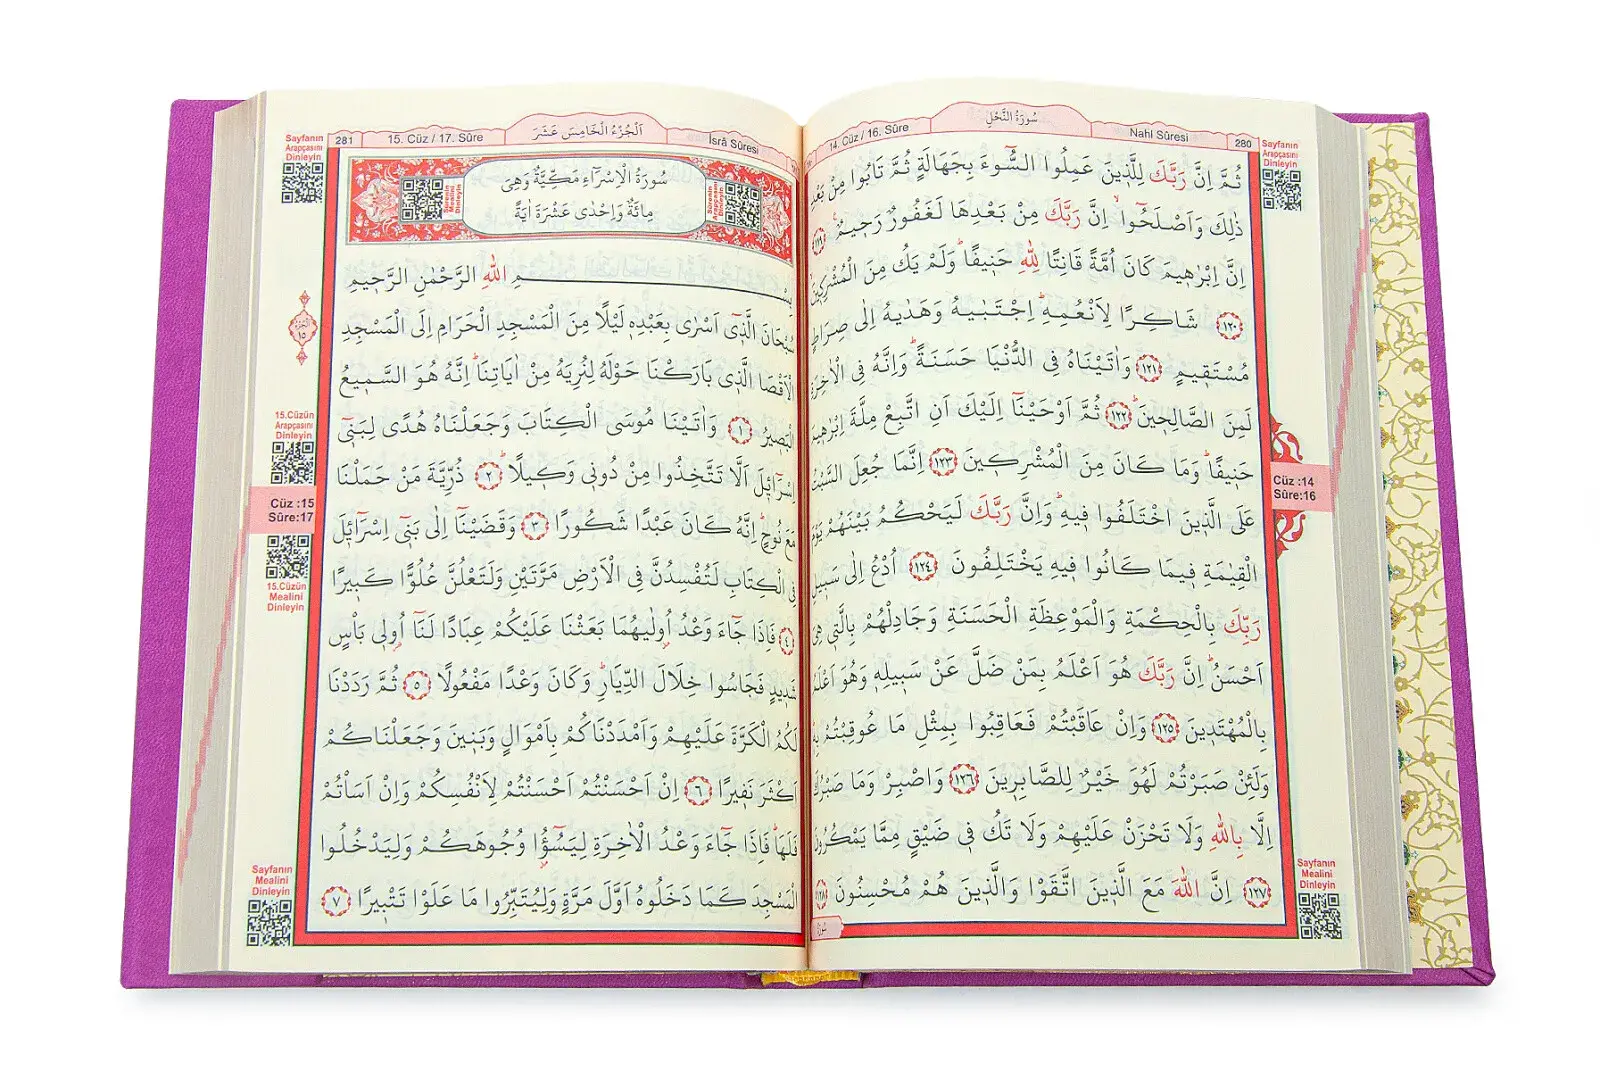 Sayfanın
Arapçasını
Dinleyin
280
Nahl Sûresi
سُورَةُ النَّحْلِ
14. Cüz / 16. Sûre
ثُمَّ اِنَّ رَبَّكَ لِلَّذ۪ينَ عَمِلُوا السُّٓوءَ بِجَهَالَةٍ ثُمَّ تَابُوا مِنْ بَعْدِ
ذٰلِكَ وَاَصْلَحُٓواۙ اِنَّ رَبَّكَ مِنْ بَعْدِهَا لَغَفُورٌ رَح۪يمٌ۟ ﴿١١٩﴾
اِنَّ اِبْرٰه۪يمَ كَانَ اُمَّةً قَانِتًا لِلّٰهِ حَن۪يفًاۜ وَلَمْ يَكُ مِنَ الْمُشْرِك۪ينَ
﴿١٢٠﴾ شَاكِرًا لِاَنْعُمِهِۜ اِجْتَبٰيهُ وَهَدٰيهُ اِلٰى صِرَاطٍ
مُسْتَق۪يمٍ ﴿١٢١﴾ وَاٰتَيْنَاهُ فِي الدُّنْيَا حَسَنَةًۜ وَاِنَّهُ فِي الْاٰخِرَةِ
لَمِنَ الصَّالِح۪ينَۜ ﴿١٢٢﴾ ثُمَّ اَوْحَيْنَٓا اِلَيْكَ اَنِ اتَّبِعْ مِلَّةَ اِبْرٰه۪يمَ
حَن۪يفًاۜ وَمَا كَانَ مِنَ الْمُشْرِك۪ينَ ﴿١٢٣﴾ اِنَّمَا جُعِلَ السَّبْتُ
عَلَى الَّذ۪ينَ اخْتَلَفُوا ف۪يهِۜ وَاِنَّ رَبَّكَ لَيَحْكُمُ بَيْنَهُمْ يَوْمَ
الْقِيٰمَةِ ف۪يمَا كَانُوا ف۪يهِ يَخْتَلِفُونَ ﴿١٢٤﴾ اُدْعُ اِلٰى سَب۪يلِ
رَبِّكَ بِالْحِكْمَةِ وَالْمَوْعِظَةِ الْحَسَنَةِ وَجَادِلْهُمْ بِالَّت۪ي هِيَ
اَحْسَنُۜ اِنَّ رَبَّكَ هُوَ اَعْلَمُ بِمَنْ ضَلَّ عَنْ سَب۪يلِه۪ وَهُوَ اَعْلَمُ
بِالْمُهْتَد۪ينَ ﴿١٢٥﴾ وَاِنْ عَاقَبْتُمْ فَعَاقِبُوا بِمِثْلِ مَا عُوقِبْتُمْ بِه۪ۜ
وَلَئِنْ صَبَرْتُمْ لَهُوَ خَيْرٌ لِلصَّابِر۪ينَ ﴿١٢٦﴾ وَاصْبِرْ وَمَا صَبْرُكَ
اِلَّا بِاللّٰهِ وَلَا تَحْزَنْ عَلَيْهِمْ وَلَا تَكُ ف۪ي ضَيْقٍ مِمَّا يَمْكُرُونَ
﴿١٢٧﴾ اِنَّ اللّٰهَ مَعَ الَّذ۪ينَ اتَّقَوْا وَالَّذ۪ينَ هُمْ مُحْسِنُونَ ﴿١٢٨﴾
Cüz :14
Sûre:16
Sayfanın
Mealini
Dinleyin
İsrâ Sûresi
اَلْجُزْءُ الْخَامِسَ عَشَرَ
15. Cüz / 17. Sûre
281
Sayfanın
Arapçasını
Dinleyin
Sûrenin
Arapçasını
Dinleyin
سُورَةُ الْاِسْرَٓاءِ مَكِّيَّةٌ وَهِيَ
مِائَةٌ وَاِحْدٰى عَشْرَةَ اٰيَةً
Sûrenin
Mealini
Dinleyin
بِسْمِ اللّٰهِ الرَّحْمٰنِ الرَّح۪يمِ
سُبْحَانَ الَّذ۪ٓي اَسْرٰى بِعَبْدِه۪ لَيْلًا مِنَ الْمَسْجِدِ الْحَرَامِ اِلَى الْمَسْجِدِ
الْاَقْصَا الَّذ۪ي بَارَكْنَا حَوْلَهُ لِنُرِيَهُ مِنْ اٰيَاتِنَاۜ اِنَّهُ هُوَ السَّم۪يعُ
الْبَص۪يرُ ﴿١﴾ وَاٰتَيْنَا مُوسَى الْكِتَابَ وَجَعَلْنَاهُ هُدًى لِبَن۪ٓي
اِسْرَٓائ۪لَ اَلَّا تَتَّخِذُوا مِنْ دُون۪ي وَك۪يلًاۜ ﴿٢﴾ ذُرِّيَّةَ مَنْ حَمَلْنَا
مَعَ نُوحٍۜ اِنَّهُ كَانَ عَبْدًا شَكُورًا ﴿٣﴾ وَقَضَيْنَٓا اِلٰى بَن۪ٓي اِسْرَٓائ۪لَ
فِي الْكِتَابِ لَتُفْسِدُنَّ فِي الْاَرْضِ مَرَّتَيْنِ وَلَتَعْلُنَّ عُلُوًّا كَب۪يرًا
﴿٤﴾ فَاِذَا جَٓاءَ وَعْدُ اُو۫لٰيهُمَا بَعَثْنَا عَلَيْكُمْ عِبَادًا لَنَٓا اُو۬ل۪ي بَأْسٍ
شَد۪يدٍ فَجَاسُوا خِلَالَ الدِّيَارِۜ وَكَانَ وَعْدًا مَفْعُولًا ﴿٥﴾ ثُمَّ رَدَدْنَا
لَكُمُ الْكَرَّةَ عَلَيْهِمْ وَاَمْدَدْنَاكُمْ بِاَمْوَالٍ وَبَن۪ينَ وَجَعَلْنَاكُمْ
اَكْثَرَ نَف۪يرًا ﴿٦﴾ اِنْ اَحْسَنْتُمْ اَحْسَنْتُمْ لِاَنْفُسِكُمْ وَاِنْ اَسَأْتُمْ
فَلَهَاۜ فَاِذَا جَٓاءَ وَعْدُ الْاٰخِرَةِ لِيَسُٓؤُ۫ا وُجُوهَكُمْ وَلِيَدْخُلُوا
الْمَسْجِدَ كَمَا دَخَلُوهُ اَوَّلَ مَرَّةٍ وَلِيُتَبِّرُوا مَا عَلَوْا تَتْب۪يرًا ﴿٧﴾
اَلْجُزْءُ
١٥
15.Cüzün
Arapçasını
Dinleyin
Cüz :15
Sûre:17
15.Cüzün
Mealini
Dinleyin
Sayfanın
Mealini
Dinleyin